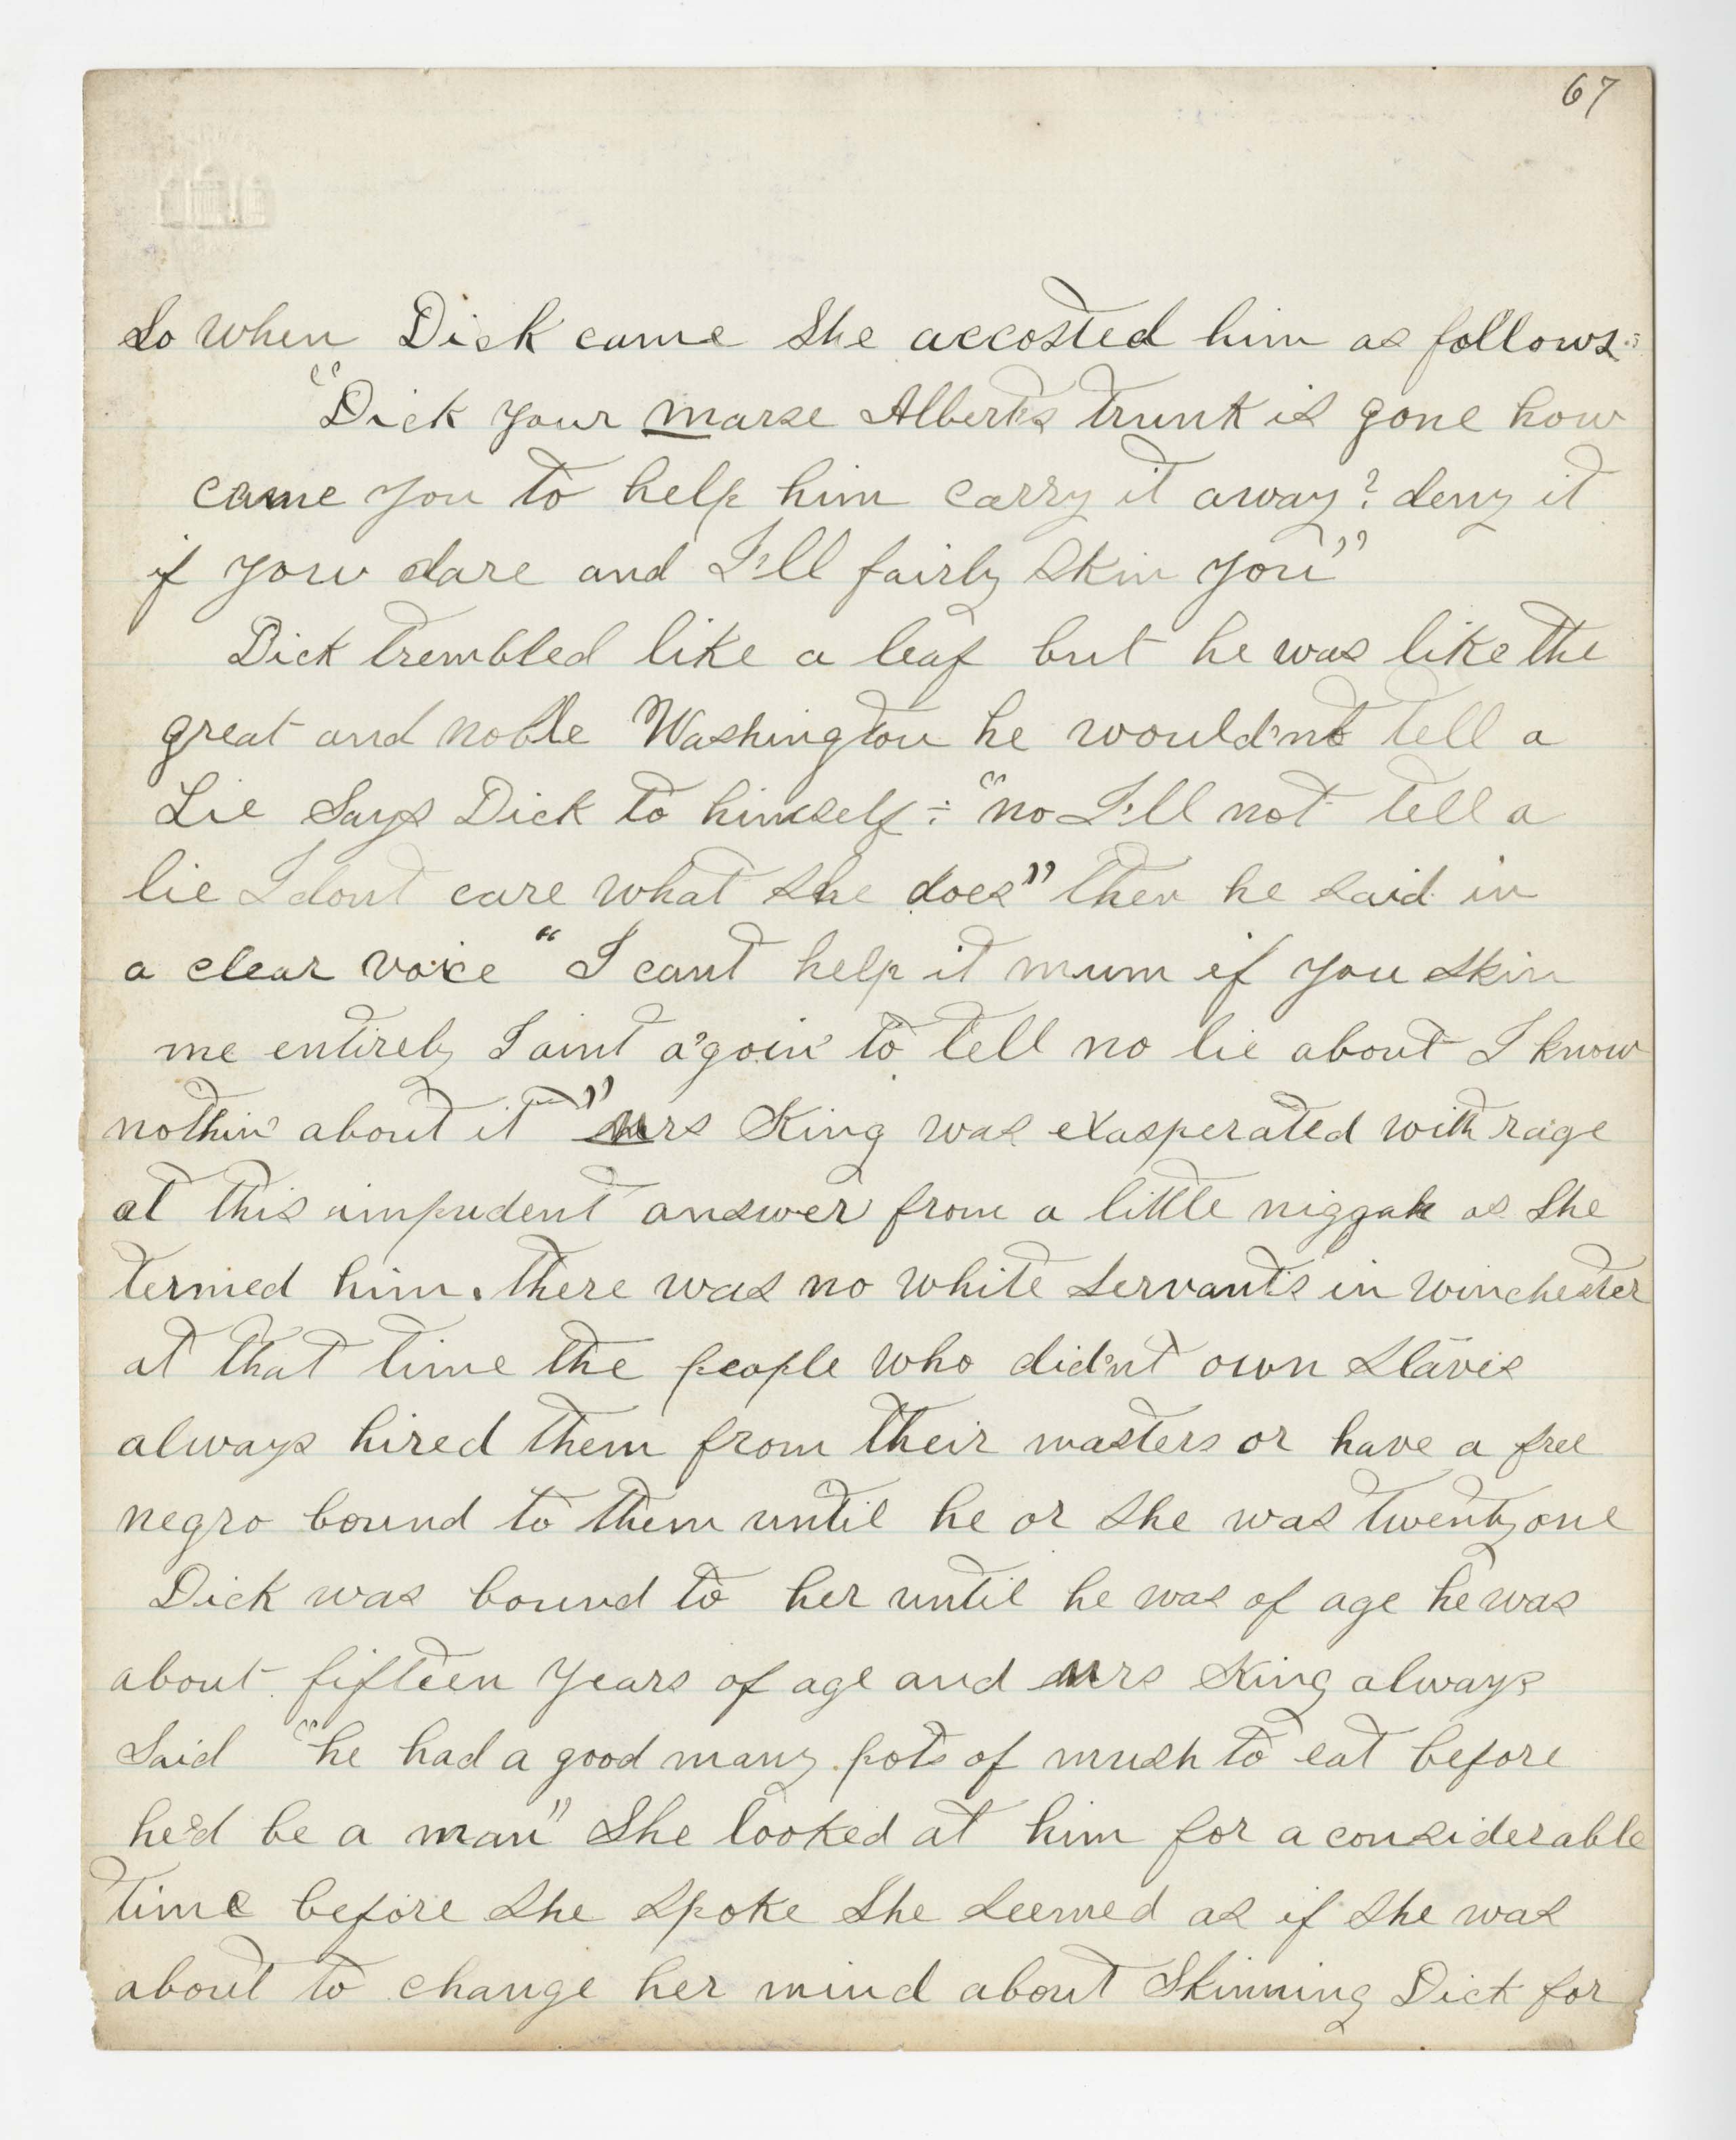 67
So when Dick came She accosted him as follows:
"Dick your marse Alberts trunk is gone how
came you to help him carry it away? deny it
if you dare and I'll fairly Skin you"
Dick trembled like a leaf but he was like the
great and noble Washington he would'nt tell a
Lie Says Dick to himself: "no I'll not tell a
lie I dont care what she does" then he said in
a clear voice "I cant help it mum if you skin
me entirely I aint a'goin' to tell no lie about I know
nothin' about it" Mrs King was exasperated with rage
at this impudent answer from a little niggah as She
termed him. there was no white servants in Winchester
at that time the people who did'nt own slaves
always hired them from their masters or have a free
negro bound to them until he or she was twenty one
Dick was bound to her until he was of age he was
about fifteen years of age and Mrs King always
Said "he had a good many pots of mush to eat before
he'd be a man" She looked at him for a considerable
time before she spoke She seemed as if she was
about to change her mind about Skinning Dick for